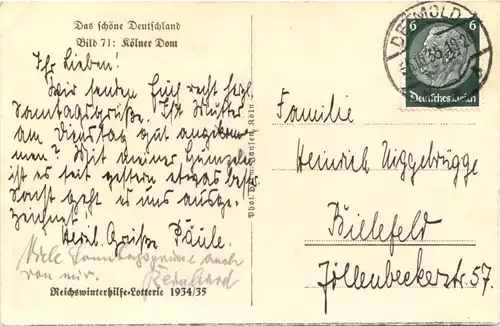 Das schöne Deutschland
Bild 71: Kölner Dom
Ihr Lieben!
Wir senden Euch recht hzl.
Sonntagsgrüße. Ist Mutter
am Dienstag gut angekom-
men? Mit meiner
ist es seit gestern etwas besser
Sonst geht es uns ausge-
zeichnet.
Herzl. Grüße Päule.
Viele Sonntagsgrüße auch
von mir. Bernhard
Reichswinterhilfe-Lotterie 1934/35
Phot. Herm. Hansen, Köln
DETMOLD
6 6
Deutsches Reich
Familie
Heinrich Niggebrügge
Bielefeld
Jöllenbeckerstr. 57.